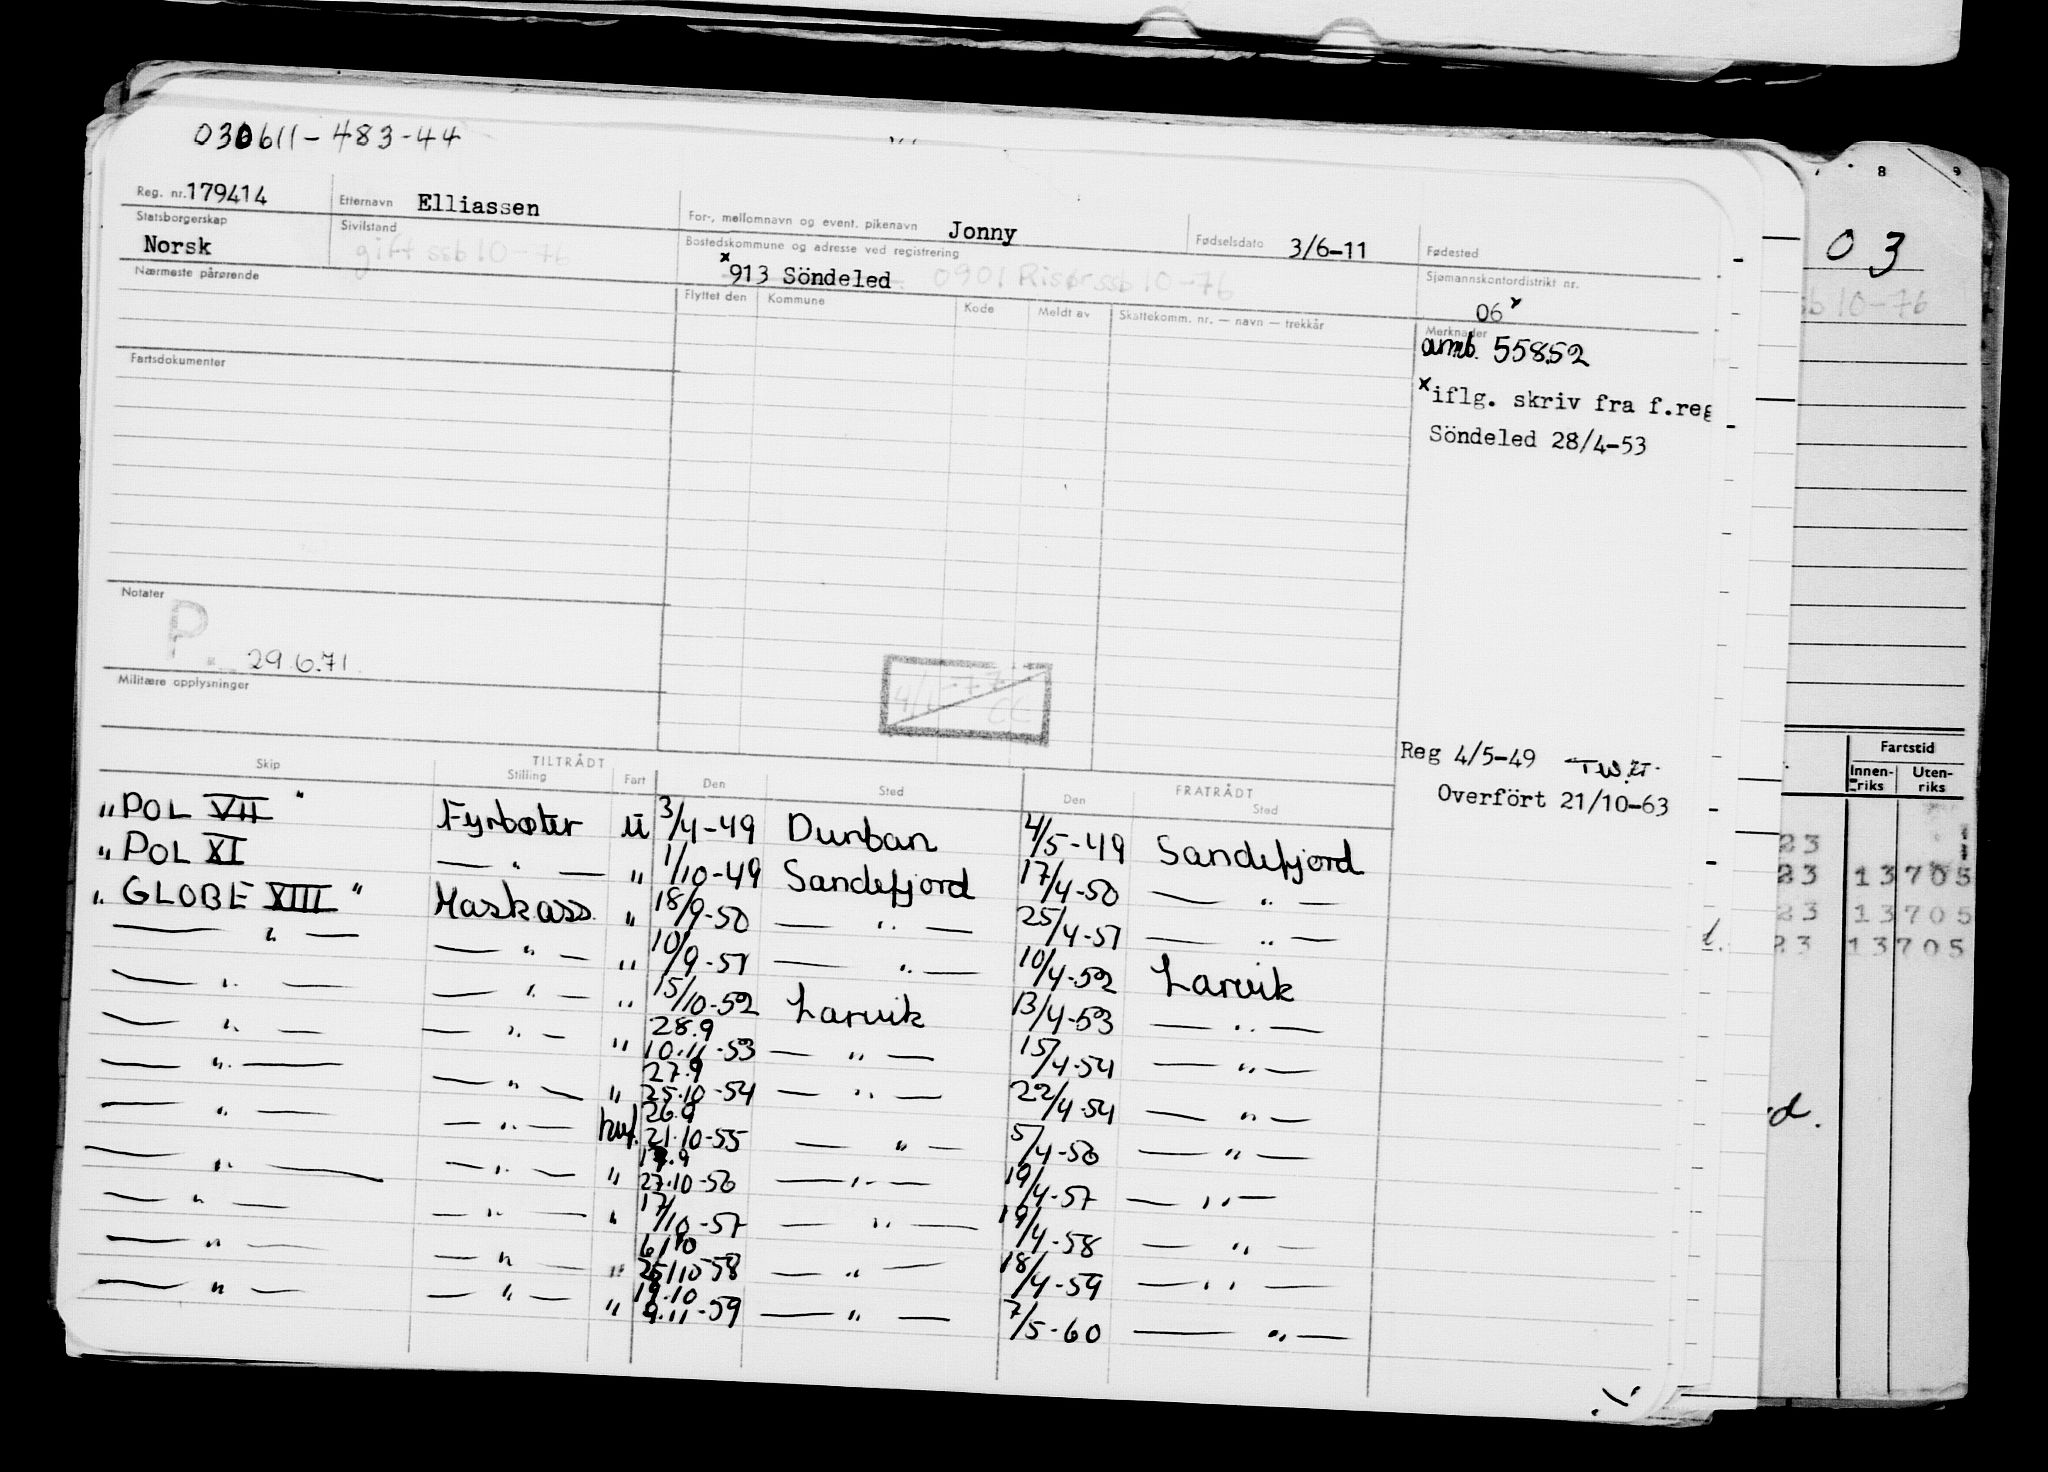 030611-483-44
Reg. nr. 179414 Etternavn Elliassen For-, mellomnavn og event. pikenavn Jonny Fødselsdato 3/6-11 Fødested
Statsborgerskap Norsk Sivilstand gift ssb 10-76 Bostedskommune og adresse ved registrering x 913 Söndeled 0901 Risør ssb 10-76 Sjømannskontordistrikt nr. 06 x
Nærmeste pårørende Flyttet den Kommune Kode Meldt av Skattekomm. nr. — navn — trekkår Merknader
amb. 55852
Fartsdokumenter
x iflg. skriv fra f.reg
Söndeled 28/4-53
Notater
P. 29.6.71.
Militære opplysninger
4/1-77 CC
Reg 4/5-49
Overfört 21/10-63
TILTRÅDT FRATRÅDT
Skip Stilling Fart Den Sted Den Sted
"POL VII" Fyrbøter U 3/4-49 Durban 4/5-49 Sandefjord
"POL XI — " — " 1/10-49 Sandefjord 17/4-50 — " —
"GLOBE XIII" Maskass. " 18/9-50 — " — 25/4-51 — " —
— " — — " — " 10/9-51 — " — 10/4-52 Larvik
— " — — " — " 15/10-52 Larvik 13/4-53 — " —
— " — — " — " 28.9 10.11-53 — " — 15/4-54 — " —
— " — — " — " 27.9 25.10-54 — " — 22/4-54 — " —
— " — — " — hvf. 26.9 21.10-55 — " — 5/4-56 — " —
— " — — " — " 17.9 27.10-56 — " — 19/4-57 — " —
— " — — " — " 17/10-57 — " — 19/4-58 — " —
— " — — " — " 6/10 25/10-58 — " — 18/4-59 — " —
— " — — " — " 19.10 9.11-59 — " — 7/5-60 — " —
8 9
03
ssb 10-76
Fartstid
Innenriks Utenriks
23
23 13705
23 13705
23 13705
d.